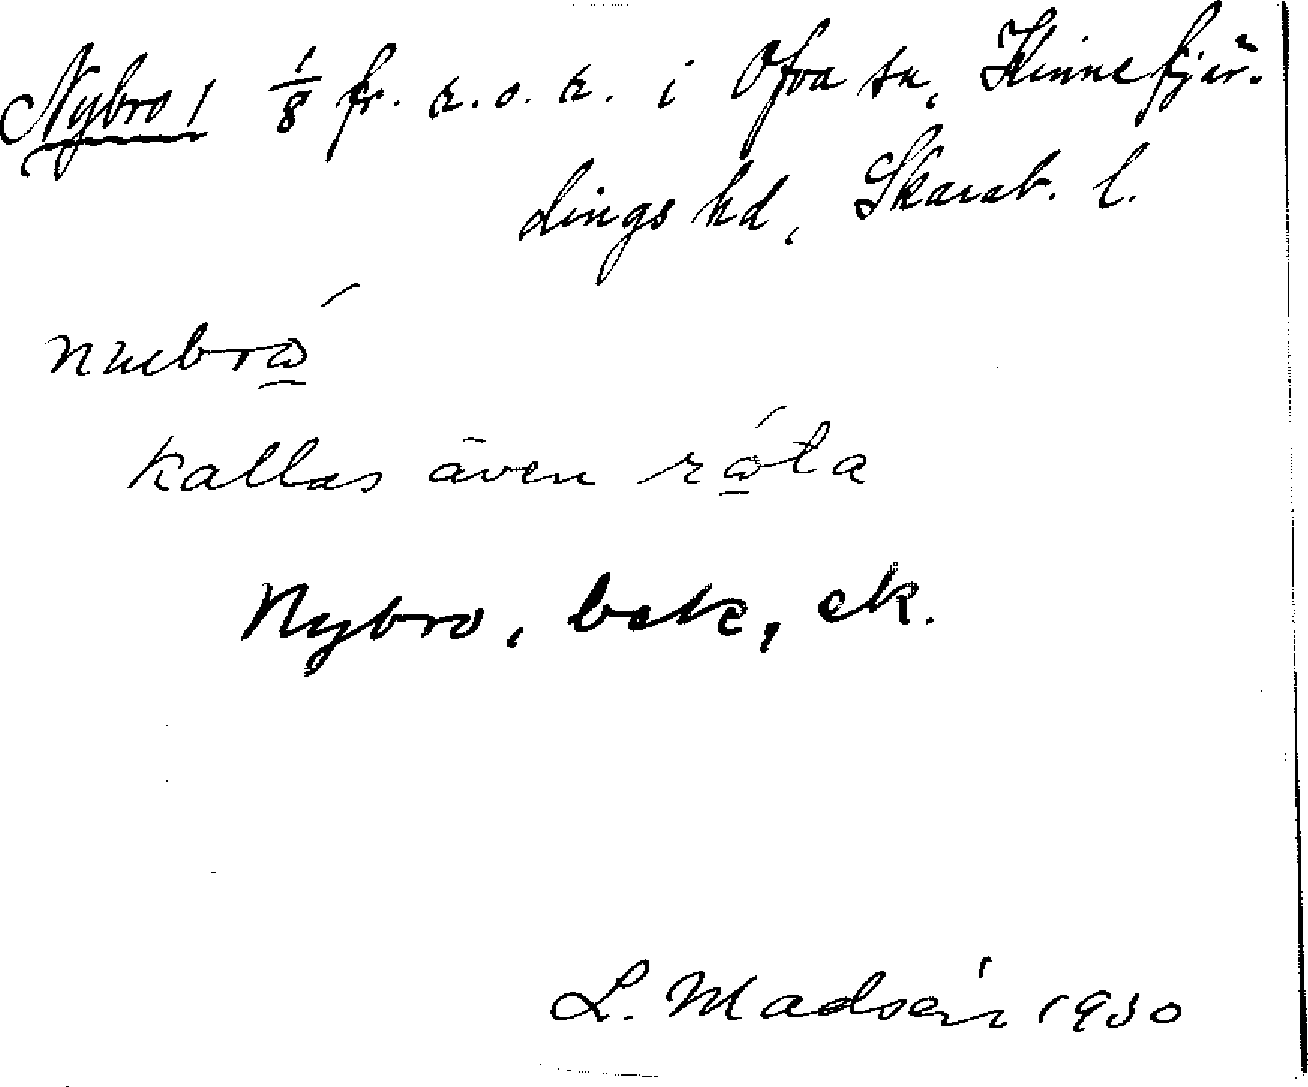 Nybro 1 1/8 fr. k. o. k. i Ofva sn, Kinnefjär-
dings hd, Skarab. l.
kallas även
Nybro, bek, ek.
L. Madsén 1930